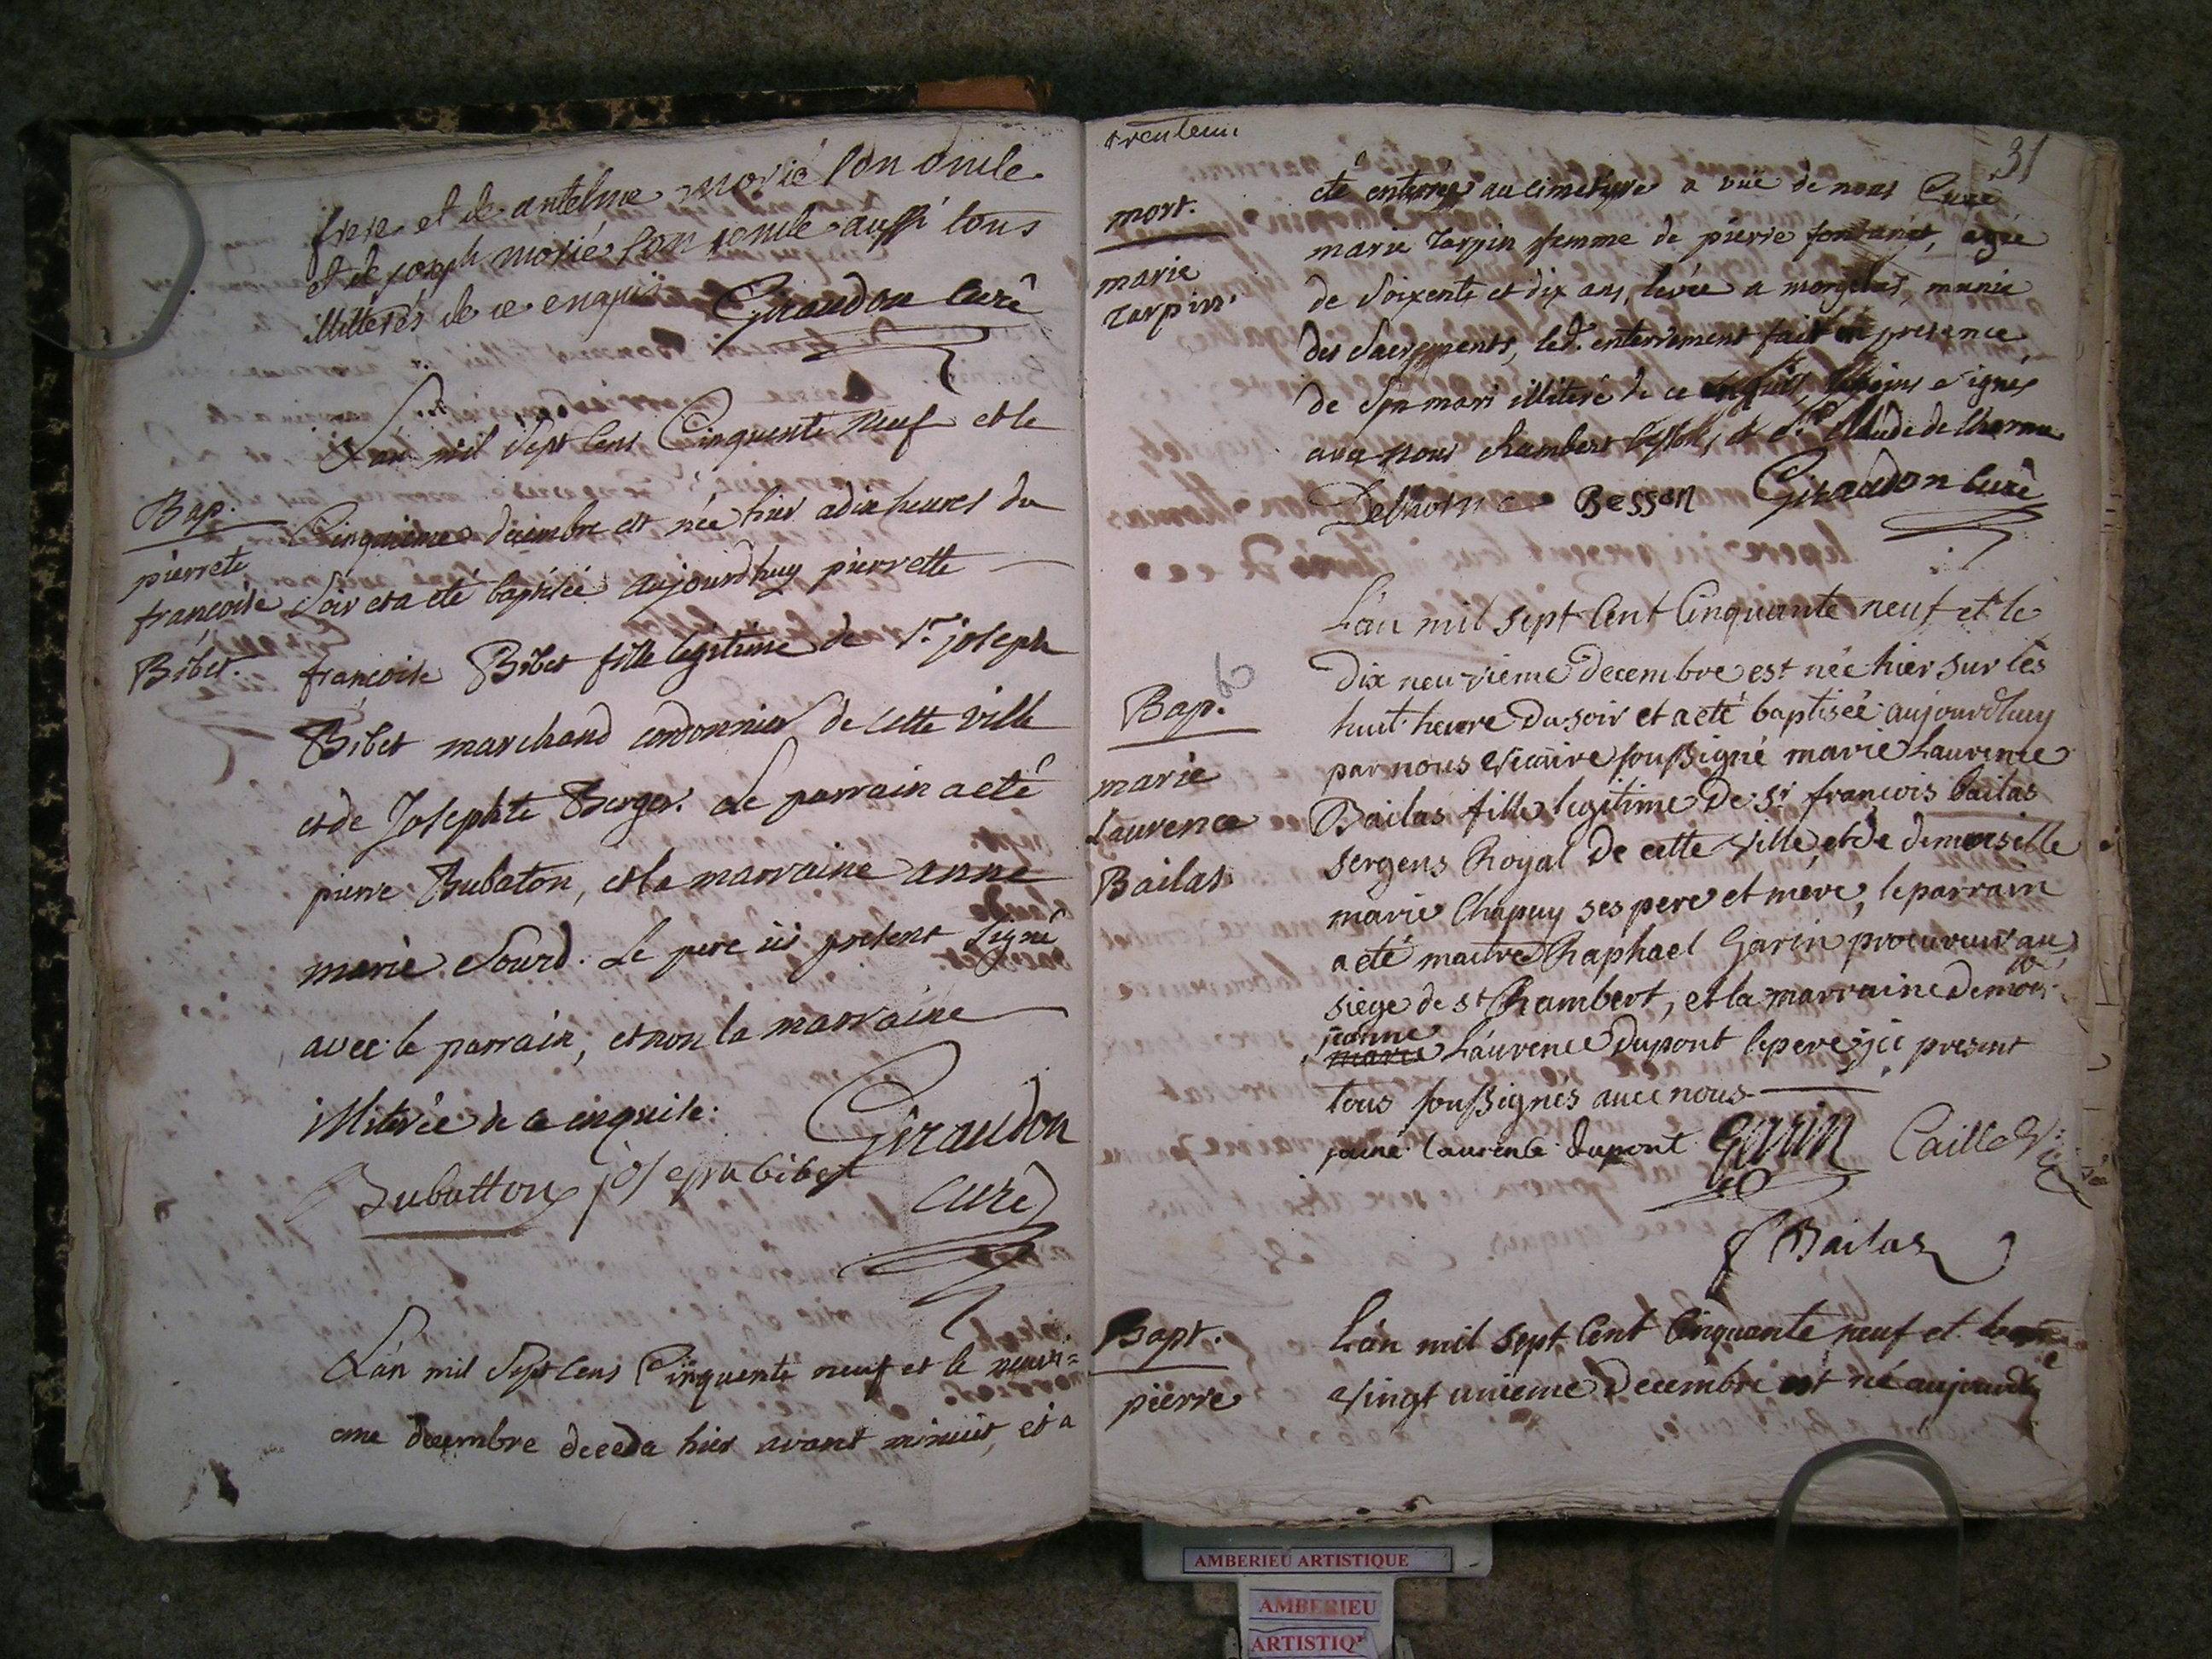 frere et de antelme morié son oncle
et de joseph morié son oncle aussi tous
illitterés de ce enquis Giraudon Curé
L'an mil Sept Cens Cinquente neuf et le
Bap.
pierrete
françoise
Bibet.
Cinquieme decembre est née hier a dix heures du
Soir et a eté baptisée aujourdhuy pierrette
françoise Bibet fille legitime de Sr joseph
Bibet marchand cordonnier de cette ville
et de Josephte Berger. Le parrain a eté
pierre Bubaton, et la marraine anne
marie Sourd. Le pere ici present Signé
avec le parrain, et non la marraine
illiterée de ce enquise:
Giraudon
Curé
Bubatton joseph bibet
L'an mil Sept Cens Cinquente neuf et le neuvi=
eme decembre deceda hier avant minuit, et a
trenteun
31
mort.
marie
Tarpin
eté enterrée au cimetiere a vuë de nous Curé
marie Tarpin femme de pierre fontanet, agée
de Soixente et dix ans, levée a morgelas, munie
des Sacrements, led. enterrement fait en presence
de Son mari illiteré de ce enquis, temoins Signés
avec nous chambert, et Sr Claude de lhorme
Delhorme Besson Giraudon Curé
6
Bap.
marie
Laurence
Bailas
L'an mil sept Cent Cinquante neuf et le
Dix neuvieme Decembre est née hier sur les
huit heure Du soir et a eté baptisée aujourdhuy
par nous Vicaire soussigné marie Laurence
Bailas fille legitime De Sr francois bailas
sergens Royal De cette ville, et de demoiselle
marie Chapuy ses pere et mere, le parrain
a eté maitre Raphael Garin procureur au
siege de st Rambert, et la marraine Demois
jeanne
marie Laurence Dupont le pere ici present
tous soussignés avec nous
jeane laurence dupont Garin Caille Vic
Bailas
Bapt.
pierre
L'an mil sept Cent Cinquante neuf et le
vingt unieme Decembre est né aujourdhuy
AMBERIEU ARTISTIQUE
AMBERIEU
ARTISTIQ